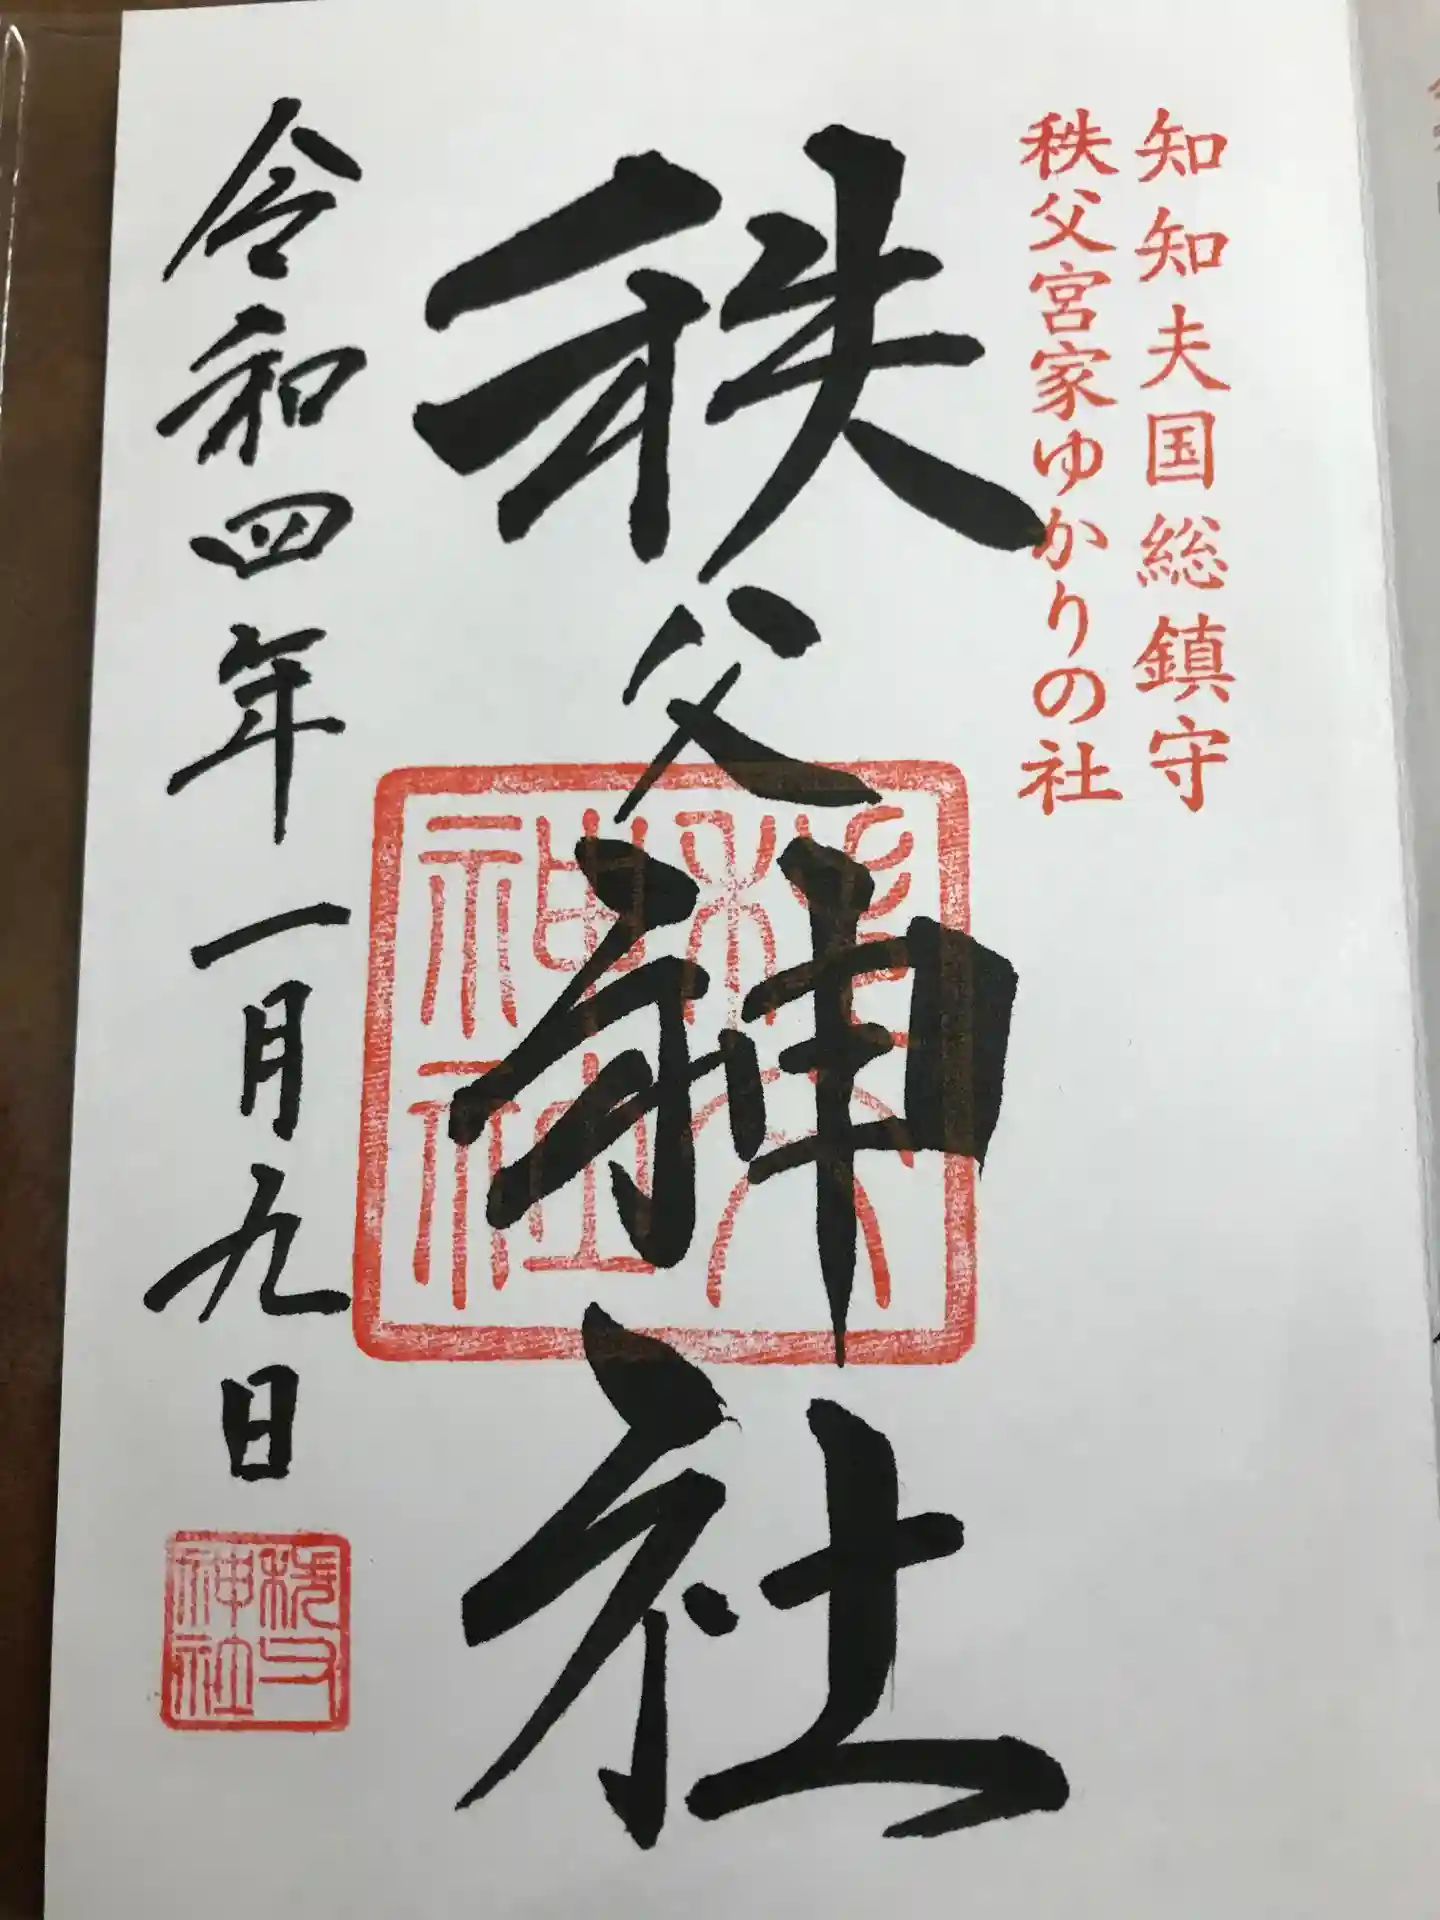 知知夫国総鎮守
秩父宮家ゆかりの社
秩父神社
秩父
神社
令和四年一月九日
秩父
神社